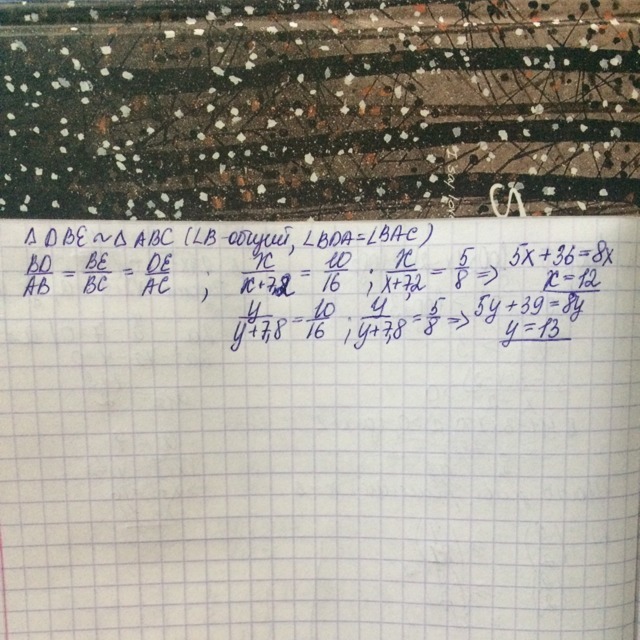 Я
△ DBE ~ △ ABC (∠B-общий, ∠BDA=∠BAC)
BD/AB = BE/BC = DE/AC ; x/(x+7,2) = 10/16 ; x/(x+7,2) = 5/8 => 5x+36=8x
x=12
y/(y+7,8) = 10/16 ; y/(y+7,8) = 5/8 => 5y+39=8y
y=13